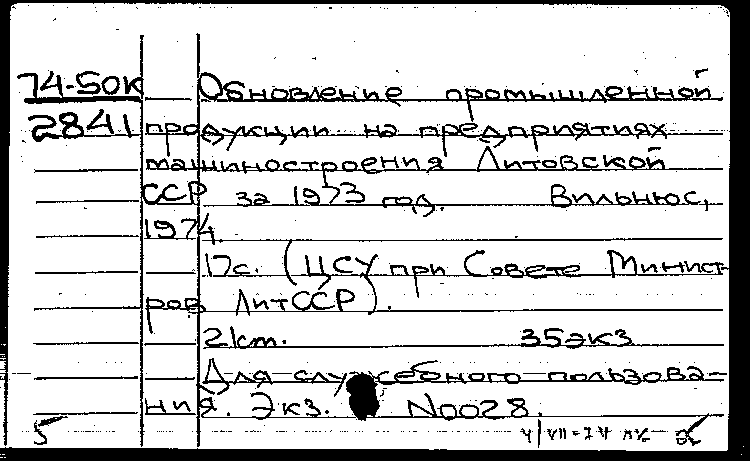 74-50к Обновление промышленной
2841 продукции на предприятиях
машиностроения Литовской
ССР за 1973 год. Вильнюс,
1974.
17с. (ЦСУ при Совете Минист-
ров ЛитССР).
21см. 35экз
Для служебного пользова-
ния. Экз. N0028.
5 4/VII-74